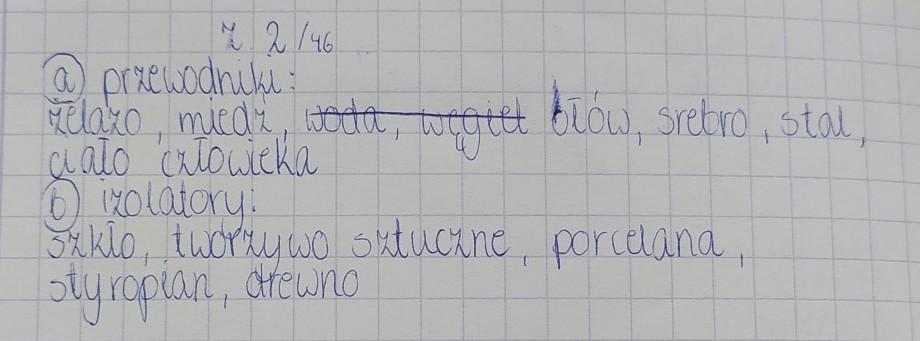 z. 2/46
a) przewodniki:
żelazo, miedź, woda, węgiel ołów, srebro, stal,
ciało człowieka
b) izolatory:
szkło, tworzywo sztuczne, porcelana,
styropian, drewno